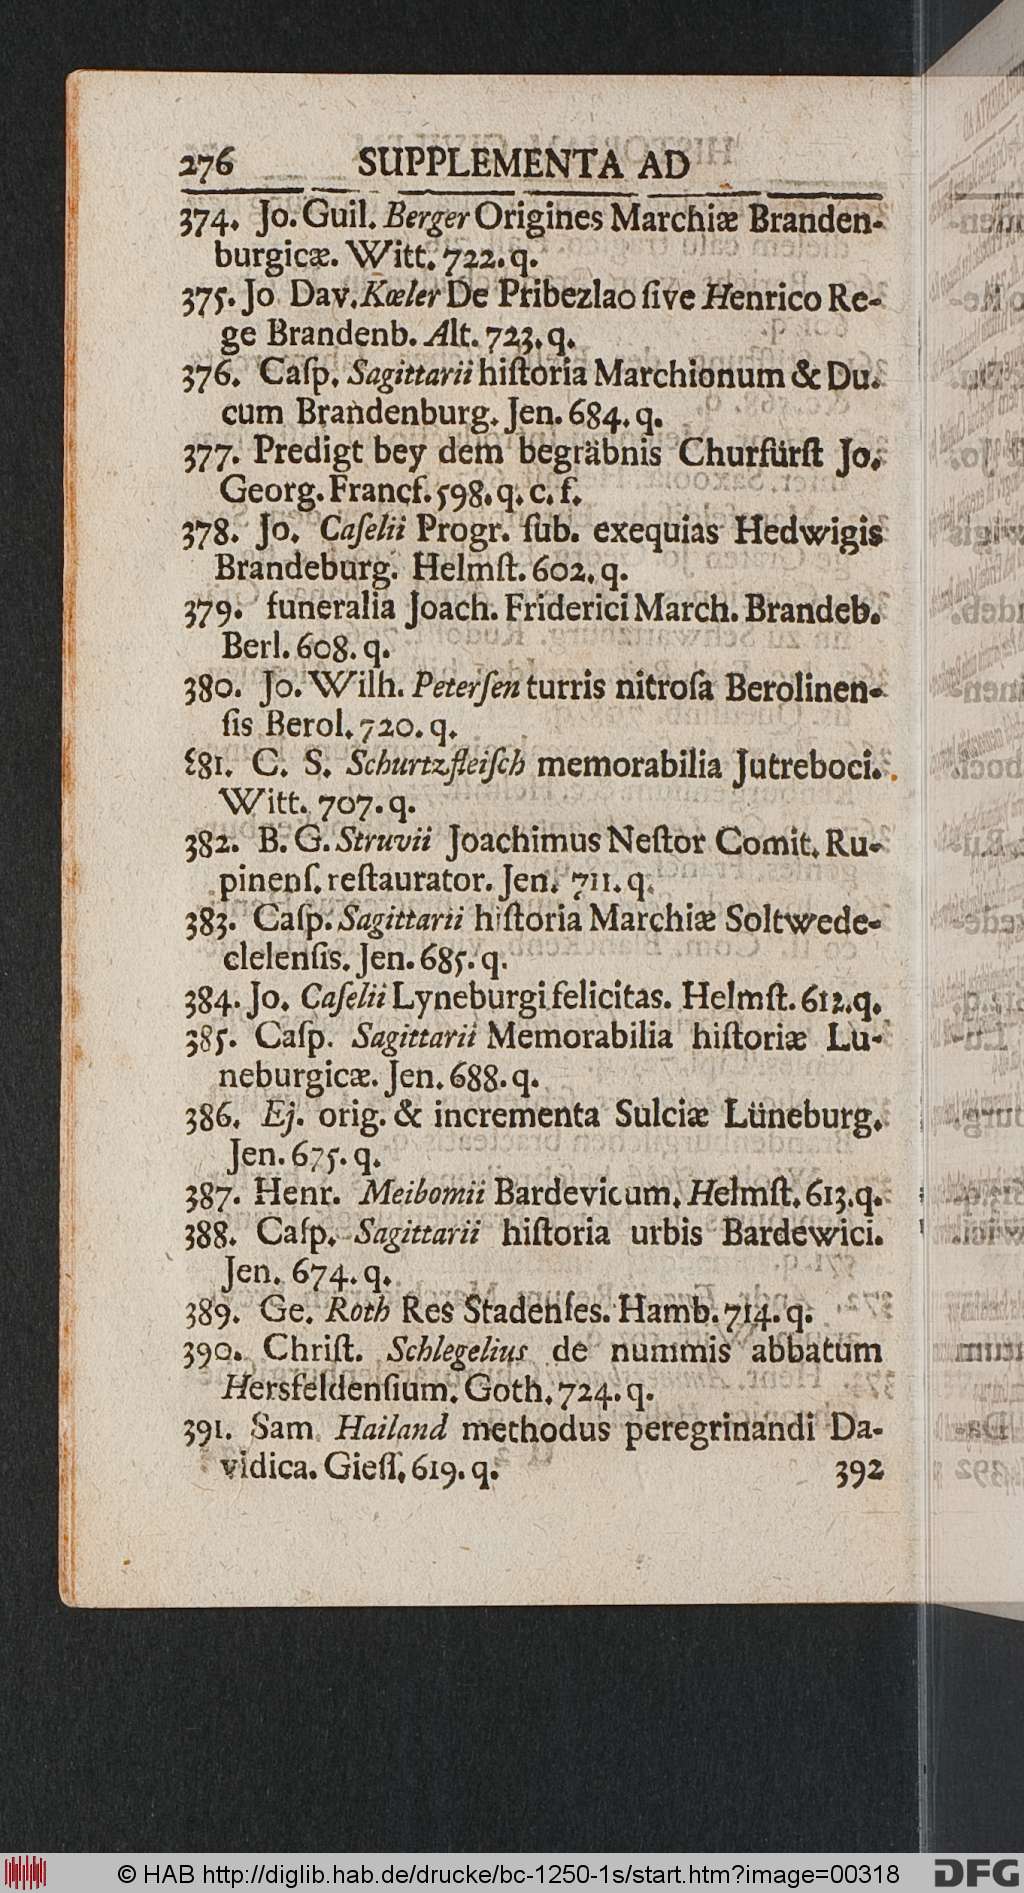 276 SUPPLEMENTA AD
374. Jo. Guil. Berger Origines Marchiæ Branden-
burgicæ. Witt. 722. q.
375. Jo Dav. Kœler De Pribezlao ſive Henrico Re-
ge Brandenb. Alt. 723. q.
376. Caſp. Sagittarii hiſtoria Marchionum & Du.
cum Brandenburg. Jen. 684. q.
377. Predigt bey dem begräbnis Churfürſt Jo.
Georg. Francf. 598. q. c. f.
378. Jo. Caſelii Progr. ſub. exequias Hedwigis
Brandeburg. Helmſt. 602. q.
379. funeralia Joach. Friderici March. Brandeb.
Berl. 608. q.
380. Jo. Wilh. Peterſen turris nitroſa Berolinen-
ſis Berol. 720. q.
381. C. S. Schurtzfleiſch memorabilia Jutreboci.
Witt. 707. q.
382. B. G. Struvii Joachimus Neſtor Comit. Ru-
pinenſ. reſtaurator. Jen. 711. q.
383. Caſp. Sagittarii hiſtoria Marchiæ Soltwede-
clelenſis. Jen. 685. q.
384. Jo. Caſelii Lyneburgi felicitas. Helmſt. 612. q.
385. Caſp. Sagittarii Memorabilia hiſtoriæ Lu-
neburgicæ. Jen. 688. q.
386. Ej. orig. & incrementa Sulciæ Lüneburg.
Jen. 675. q.
387. Henr. Meibomii Bardevicum. Helmſt. 613. q.
388. Caſp. Sagittarii hiſtoria urbis Bardewici.
Jen. 674. q.
389. Ge. Roth Res Stadenſes. Hamb. 714. q.
390. Chriſt. Schlegelius de nummis abbatum
Hersfeldenſium. Goth. 724. q.
391. Sam. Hailand methodus peregrinandi Da-
vidica. Gieſſ. 619. q. 392
© HAB http://diglib.hab.de/drucke/bc-1250-1s/start.htm?image=00318 DFG